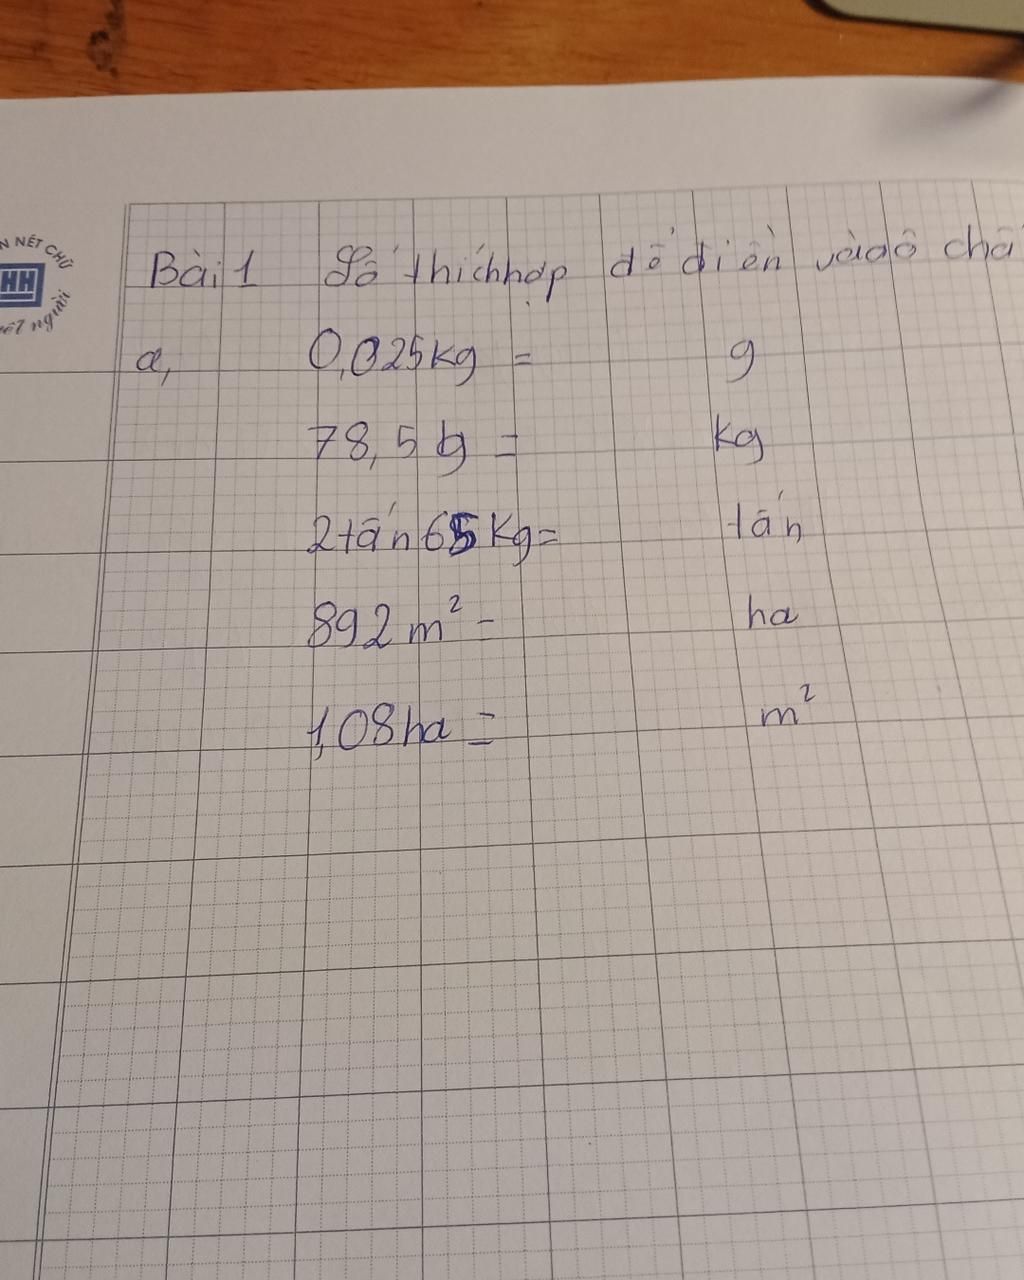 N NẾT CHỮ
HH
ết người
Bài 1 Số thích hợp để điền vào ô chấ
a, 0,025kg = g
78,5 g = kg
2 tấn 65 Kg = tấn
892 m² = ha
1,08 ha = m²